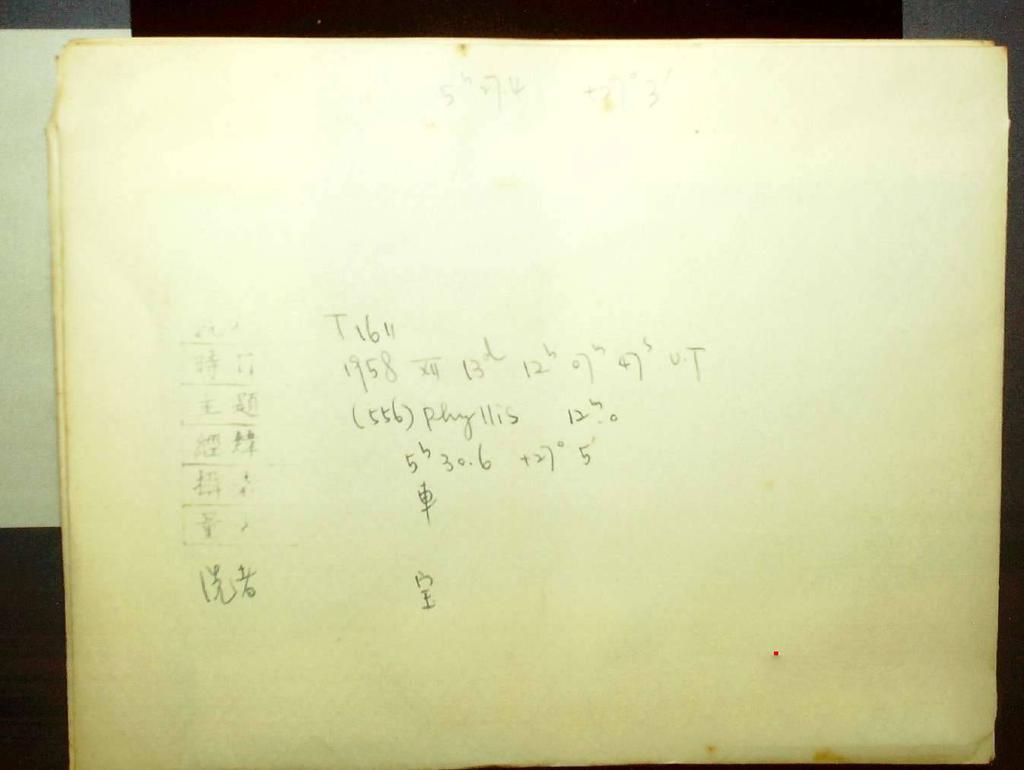 5ʰ 27.4 +27° 3′
T 1611
時 日 1958 XII 13ᵈ 12ʰ 07ᵐ 47ˢ U.T
主 題 (556) Phyllis 12ᵐ.0
經 緯 5ʰ 30.6 +27° 5′
攝 車
量
洗者 宝